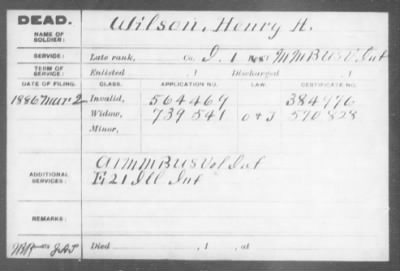 DEAD.
NAME OF SOLDIER: Wilson, Henry H.
SERVICE: Late rank, Co. D. 1 Reg't M M B U S V. Inf
TERM OF SERVICE: Enlisted , 1 Discharged , 1
DATE OF FILING. CLASS. APPLICATION NO. LAW. CERTIFICATE NO.
1886 Mar 2 Invalid, 564469 384976
Widow, 739541 O & J 570828
Minor,
ADDITIONAL SERVICES: A 1 M M B U S Vol Inf
E 21 Ill Inf
REMARKS:
Died , 1 , at